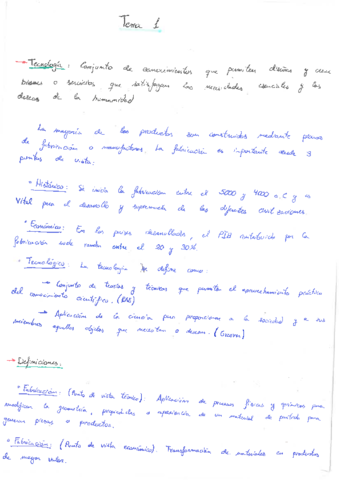 Tema 1
→ Tecnología: Conjunto de conocimientos que permiten diseñar y crear
bienes o servicios que satisfagan las necesidades esenciales y los
deseos de la humanidad
La mayoría de los productos son construidos mediante procesos
de fabricación o manufactura. La fabricación es importante desde 3
puntos de vista:
• Histórico: Se inició la fabricación entre el 5000 y 4000 a.C y es
Vital para el desarrollo y supervivencia de las diferentes civilizaciones
• Económico: En los países desarrollados, el PIB constituido por la
fabricación suele rondar entre el 20 y 30%
• Tecnológico: La tecnología se define como:
→ Conjunto de teorías y técnicas que permiten el aprovechamiento práctico
del conocimiento científico. (RAE)
→ Aplicación de la ciencia para proporcionar a la sociedad y a sus
miembros aquellos objetos que necesitan o desean. (Groover)
→ Definiciones:
• Fabricación: (Punto de vista técnico): Aplicación de procesos físicos y químicos para
modificar la geometría, propiedades o apariencia de un material de partida para
generar piezas o productos.
• Fabricación: (Punto de vista económico). Transformación de materiales en productos
de mayor valor.